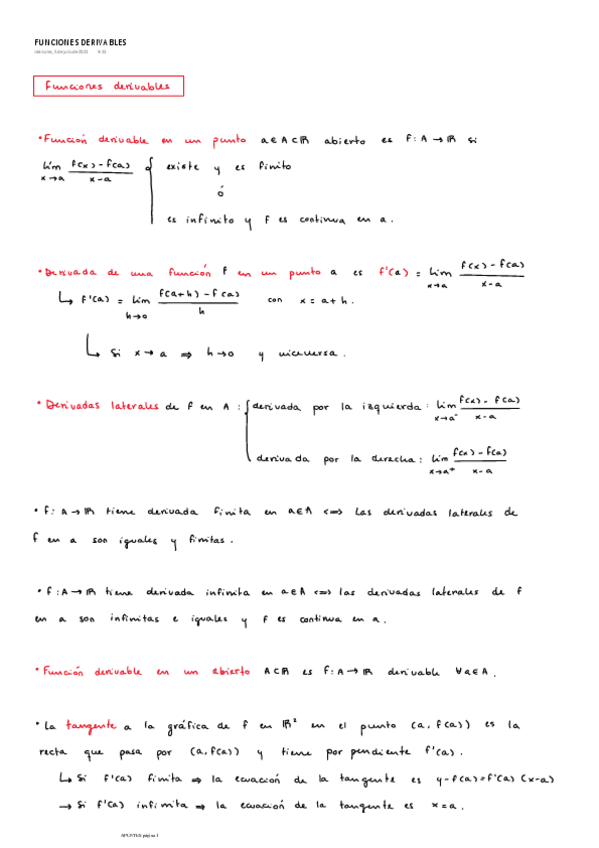 FUNCIONES DERIVABLES
Funciones derivables
• Función derivable en un punto a ∈ A ⊂ ℝ abierto es f: A → ℝ si
lím_{x→a} (f(x) - f(a))/(x-a) { existe y es finito
ó
es infinito y f es continua en a.
• Derivada de una función f en un punto a es f'(a) = lím_{x→a} (f(x) - f(a))/(x-a)
↳ f'(a) = lím_{h→0} (f(a+h) - f(a))/h con x = a+h.
↳ Si x→a ⇒ h→0 y viceversa.
• Derivadas laterales de f en A: { derivada por la izquierda: lím_{x→a⁻} (f(x) - f(a))/(x-a)
derivada por la derecha: lím_{x→a⁺} (f(x) - f(a))/(x-a)
• f: A → ℝ tiene derivada finita en a∈A ⟺ las derivadas laterales de
f en a son iguales y finitas.
• f: A → ℝ tiene derivada infinita en a∈A ⟺ las derivadas laterales de f
en a son infinitas e iguales y f es continua en a.
• Función derivable en un abierto A⊂ℝ es f: A → ℝ derivable ∀a∈A.
• La tangente a la gráfica de f en ℝ² en el punto (a, f(a)) es la
recta que pasa por (a, f(a)) y tiene por pendiente f'(a).
↳ Si f'(a) finita ⇒ la ecuación de la tangente es y-f(a)=f'(a) (x-a)
→ Si f'(a) infinita ⇒ la ecuación de la tangente es x=a.
APUNTES página 1